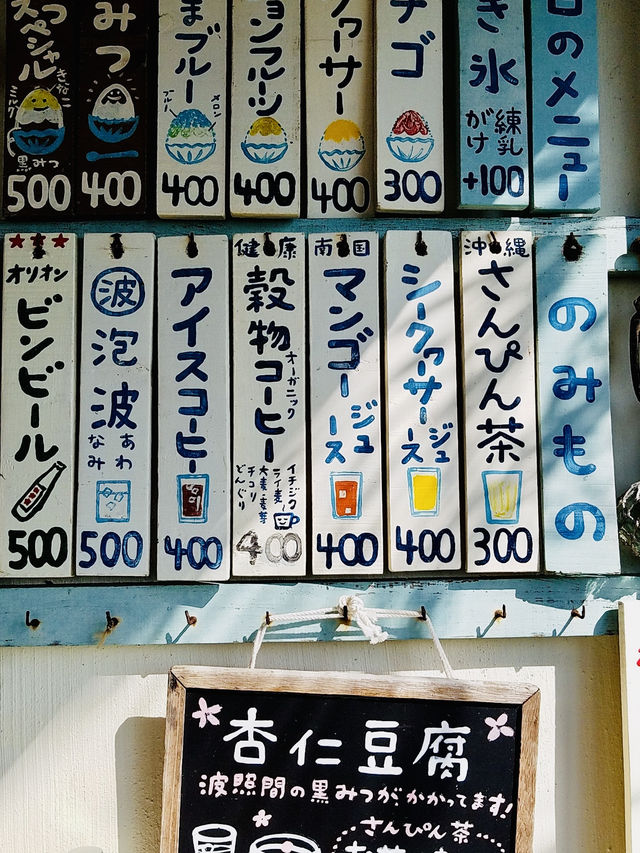 のメニュー
き氷
練乳
がけ
+100
チゴ
300
クァサー
400
ョンフルーツ
400
まブルー
ブルー
メロン
400
みつ
400
スペシャル
ミルク
きなこ
黒みつ
500
のみもの
沖縄
さんぴん茶
300
シークァサー
ジュース
400
南国
マンゴー
ジュース
400
健康
穀物コーヒー
オーガニック
イチジク
ライ麦
大麦・麦芽
チコリ
どんぐり
400
アイスコーヒー
400
波
泡波
あわ
なみ
500
オリオン
ビンビール
500
杏仁豆腐
波照間の黒みつがかかってます!
さんぴん茶